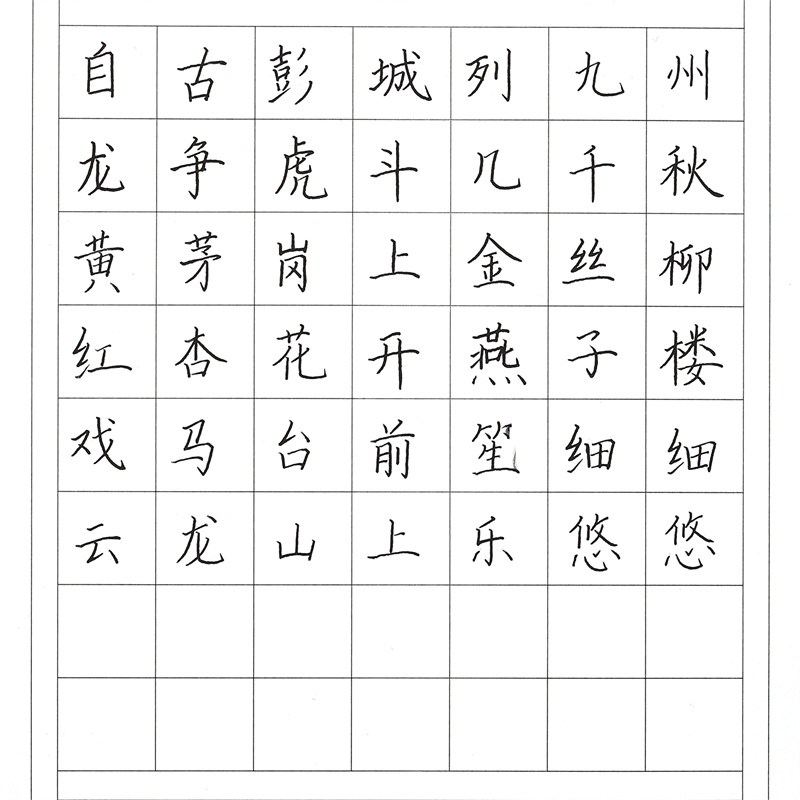 自古彭城列九州
龙争虎斗几千秋
黄茅岗上金丝柳
红杏花开燕子楼
戏马台前笙细细
云龙山上乐悠悠